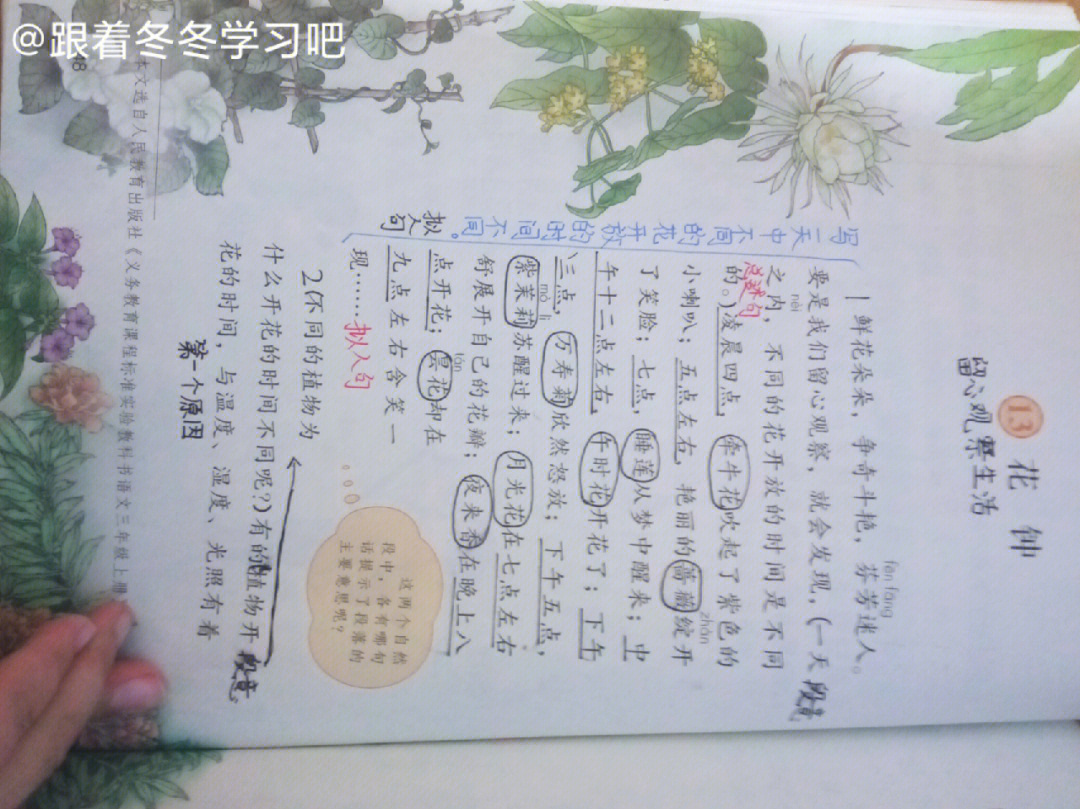 @跟着冬冬学习吧
13 花钟
留心观察生活
fēn fāng
1鲜花朵朵，争奇斗艳，芬芳迷人。
要是我们留心观察，就会发现，(一天 段意
nèi
之内，不同的花开放的时间是不同
总述句
的。)凌晨四点，牵牛花吹起了紫色的
zhàn
小喇叭；五点左右，艳丽的蔷薇绽开
了笑脸；七点，睡莲从梦中醒来；中
午十二点左右，午时花开花了；下午
三点，万寿菊欣然怒放；下午五点，
mò lì
紫茉莉苏醒过来；月光花在七点左右
舒展开自己的花瓣；夜来香在晚上八
tán
点开花；昙花却在
九点左右含笑一
现……拟人句
写一天中不同的花开放的时间不同。
拟人句
2(不同的植物为
什么开花的时间不同呢?)有的植物开 段意
花的时间，与温度、湿度、光照有着
第一个原因
这两个自然
段中，各有哪句
话提示了段落的
主要意思呢？
本文选自人民教育出版社《义务教育课程标准实验教科书语文三年级上册
48